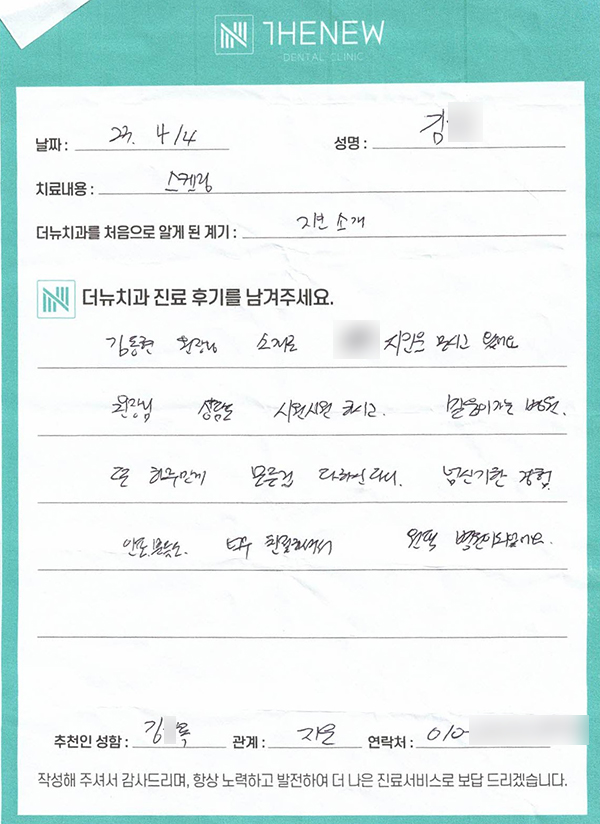 THENEW
DENTAL CLINIC
날짜 : 23. 4/4
성명 : 김
치료내용 : 스켈링
더뉴치과를 처음으로 알게 된 계기 : 지인 소개
더뉴치과 진료 후기를 남겨주세요.
김동현 원장님 소개로 지인을 모시고 왔어요
원장님 상담도 시원시원 하시고. 믿음이가는 병원.
또 하루만에 모든걸 다하신다니. 넘신기한 경험.
모두 친절하셔서 완픽 병원이되었어요.
추천인 성함 : 김 관계 : 지인 연락처 : 010-
작성해 주셔서 감사드리며, 항상 노력하고 발전하여 더 나은 진료서비스로 보답 드리겠습니다.